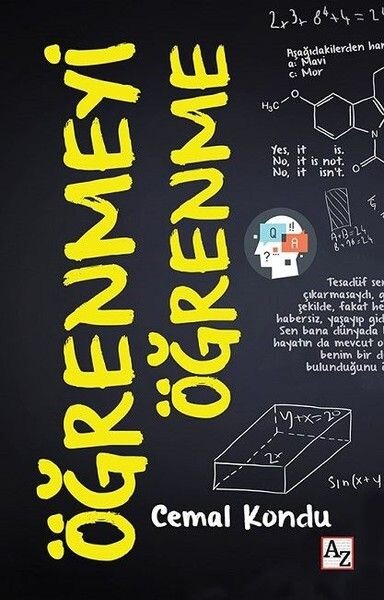 ÖĞRENMEYİ
ÖĞRENME
2x3x 8⁴+4 = 2
Aşağıdakilerden har
a: Mavi
c: Mor
H₃C
O
N
O
Yes, it is.
No, it is not.
No, it isn't.
Q !!
? A
A+B=24
Tesadüf ser
çıkarmasaydı, o
şekilde, fakat he
habersiz, yaşayıp gid
Sen bana dünyada b
hayatın da mevcut o
benim bir d
bulunduğunu ö
y+x=20
2x
Sin(x+y
Cemal Kondu
AZ